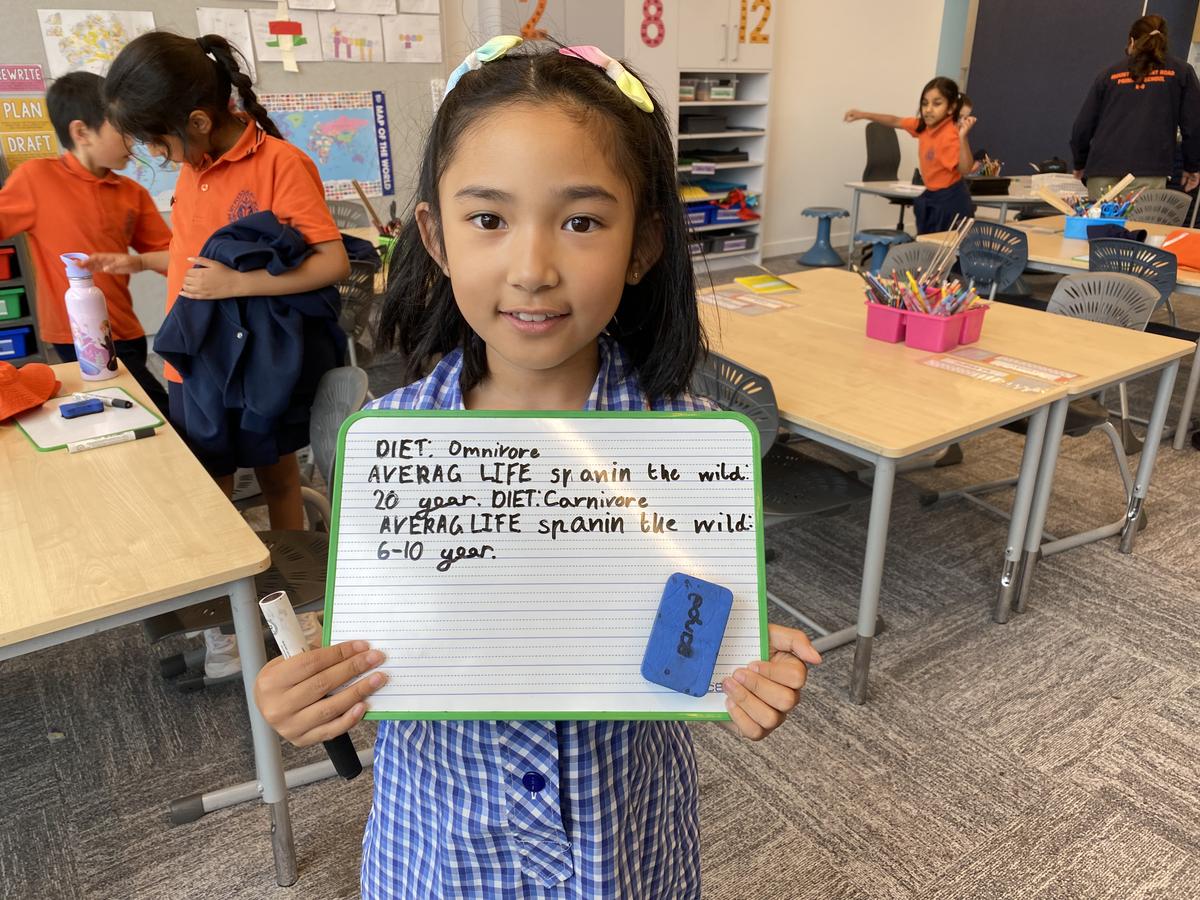 2
8
12
REWRITE
PLAN
DRAFT
MAP OF THE WORLD
DIET: Omnivore
AVERAG LIFE spanin the wild:
20 year. DIET:Carnivore
AVERAG LIFE spanin the wild:
6-10 year.